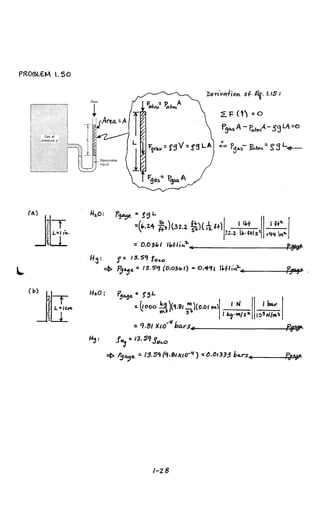 PROBLEM 1.50
Derivation of Eq. 1.15:
Patm
Area = A
Fatm = Patm A
Gas at
pressure p
L
Manometer
liquid
Fgrav = ρgV = ρgLA
Fgas = Pgas A
ΣF(↑) = 0
Pgas A - Patm A - ρgLA = 0
∴ Pgas - Patm = ρgL
(a)
L = 1 in.
H₂O: Pgage = ρgL
= (62.4 lb/ft³)(32.2 ft/s²)(1/12 ft) | 1 lbf / 32.2 lb·ft/s² | | 1 ft² / 144 in² |
= 0.0361 lbf/in² Pgage
Hg: ρ = 13.59 ρH₂O
⇒ Pgage = 13.59 (0.0361) = 0.491 lbf/in² Pgage
(b)
L = 1 cm
H₂O: Pgage = ρgL
= (1000 kg/m³)(9.81 m/s²)(0.01 m) | 1 N / 1 kg·m/s² | | 1 bar / 10⁵ N/m² |
= 9.81 x10⁻⁴ bars Pgage
Hg: ρHg = 13.59 ρH₂O
⇒ Pgage = 13.59 (9.81x10⁻⁴) = 0.01333 bars Pgage
1-28